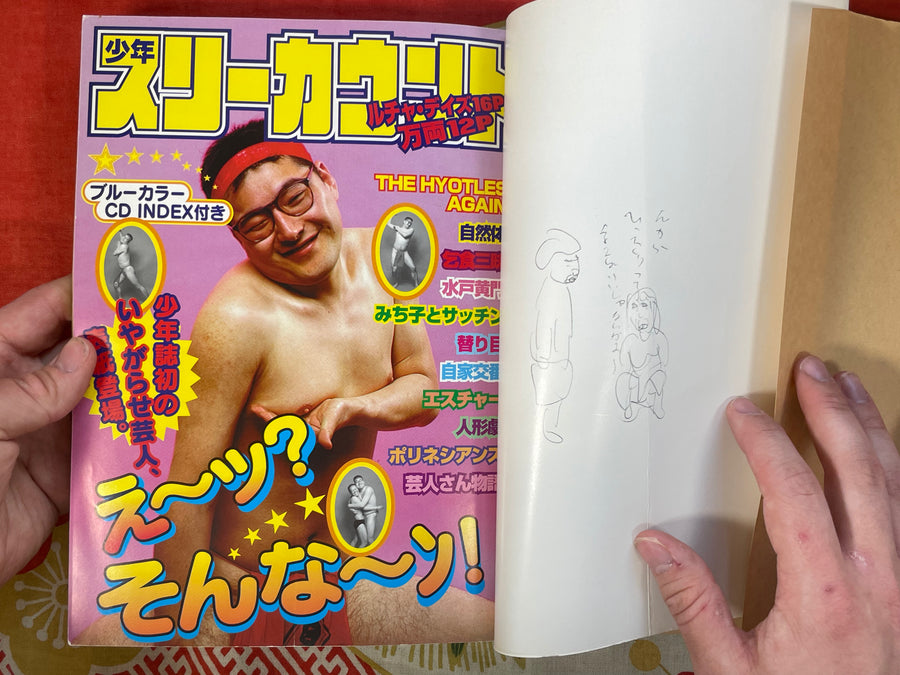 少年
スリーカウント
ルチャ・デイズ16P
万両12P
ブルーカラー
CD INDEX付き
THE HYOTLES
AGAIN
自然体
乞食三昧
水戸黄門
みち子とサッチン
替り目
自家交番
エスチャー
人形劇
ポリネシアンス
芸人さん物語
少年誌初の
いやがらせ芸人、
登場。
え〜ッ?
そんな〜ン!